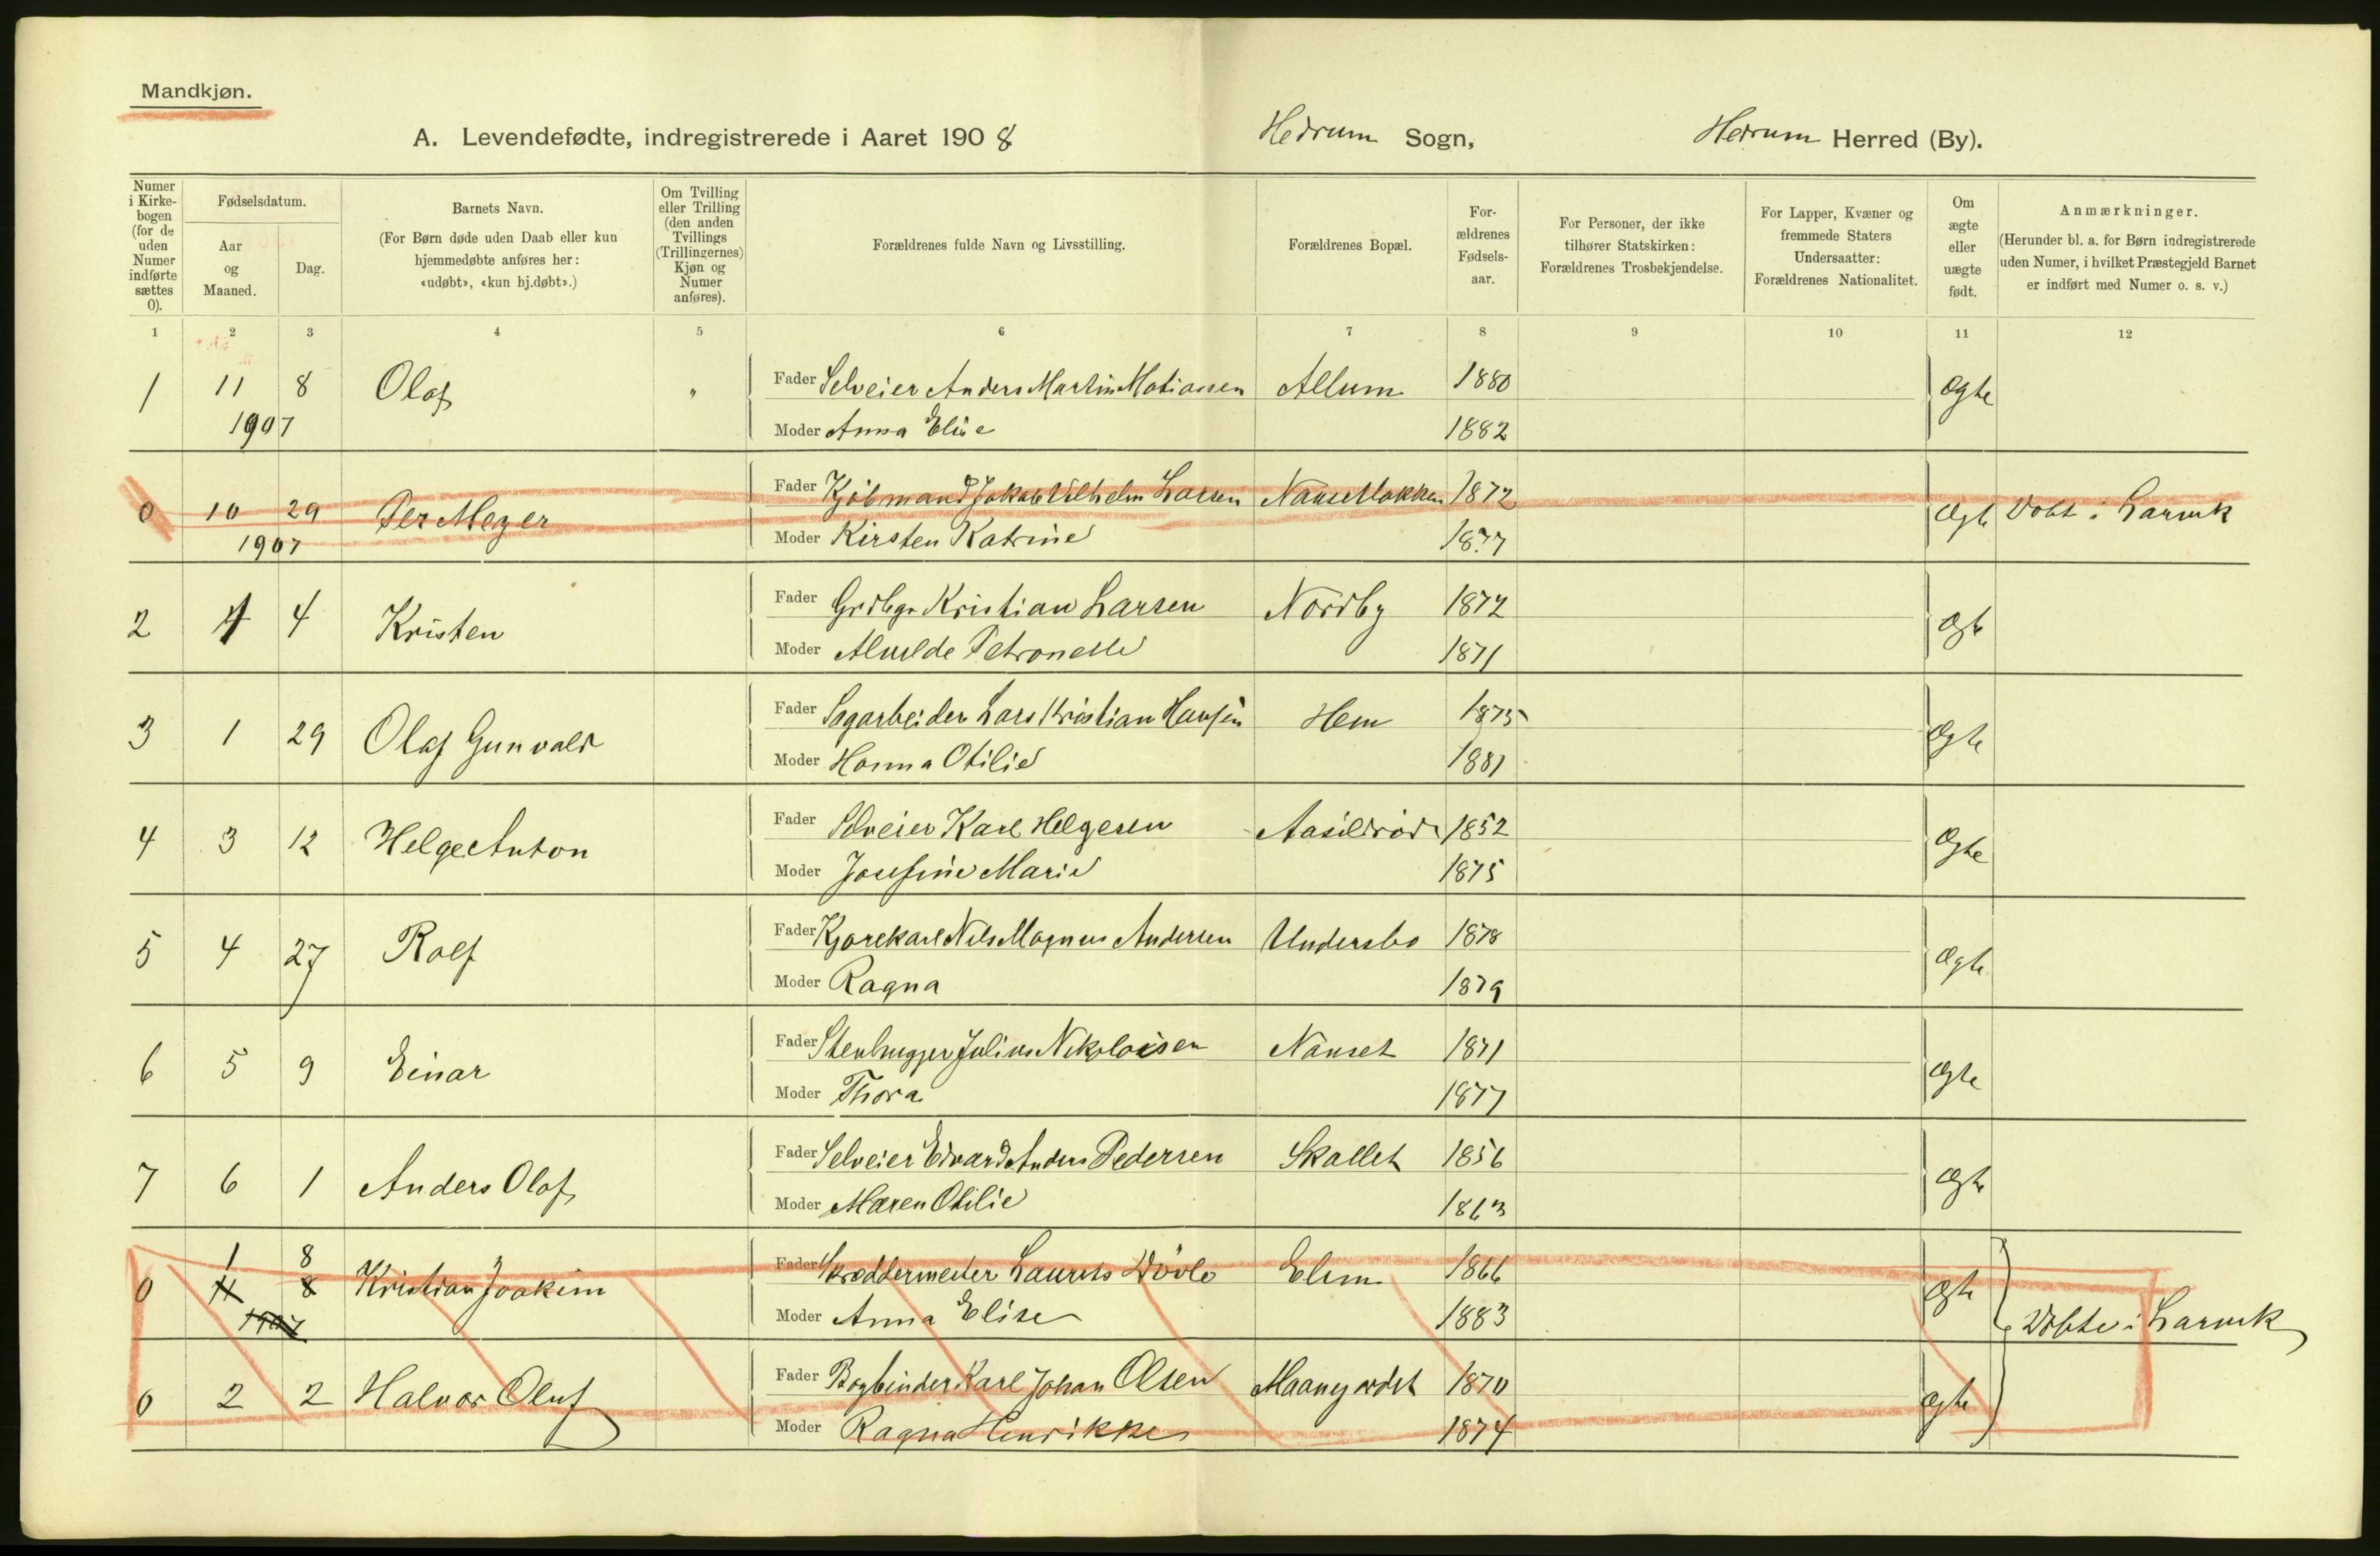 Mandkjøn.
A. Levendefødte, indregistrerede i Aaret 1908 Hedrum Sogn, Hedrum Herred (By).
Numer i Kirkebogen (for de uden Numer indførte sættes 0).
Fødselsdatum.
Aar og Maaned.
Dag.
Barnets Navn.
(For Børn døde uden Daab eller kun hjemmedøbte anføres her: «udøbt», «kun hj.døbt».)
Om Tvilling eller Trilling (den anden Tvillings (Trillingernes) Kjøn og Numer anføres).
Forældrenes fulde Navn og Livsstilling.
Forældrenes Bopæl.
For-ældrenes Fødsels-aar.
For Personer, der ikke tilhører Statskirken: Forældrenes Trosbekjendelse.
For Lapper, Kvæner og fremmede Staters Undersaatter: Forældrenes Nationalitet.
Om ægte eller uægte født.
Anmærkninger.
(Herunder bl. a. for Børn indregistrerede uden Numer, i hvilket Præstegjeld Barnet er indført med Numer o. s. v.)
1 2 3 4 5 6 7 8 9 10 11 12
1 11 8 Olaf " Fader Selveier Anders Martin Matiassen Allum 1880 ægte
1907 Moder Anna Elise 1882
0 10 29 Per Meyer Fader Kjøbmand Jakob Vilhelm Larsen Nansetlokken 1872 ægte Døbt i Larvik
1907 Moder Kirsten Katrine 1877
2 4 Kristen Fader Grdbgr Kristian Larsen Nordby 1872 ægte
Moder Alvilde Petronelle 1871
3 1 29 Olaf Gunvald Fader Sagarbeider Lars Kristian Hansen Hem 1875 ægte
Moder Hanna Otilie 1881
4 3 12 Helge Anton Fader Selveier Karl Helgesen 1852 ægte
Moder Josefine Marie 1875
5 4 27 Rolf Fader Kjørekarl Nils Magnus Andersen Undersbo 1878 ægte
Moder Ragna 1879
6 5 9 Einar Fader Stenhugger Julius Nikolaisen Nanset 1871 ægte
Moder Thora 1877
7 6 1 Anders Olaf Fader Selveier Edvard Anders Pedersen Skallet 1856 ægte
Moder Maren Otilie 1863
1 8
0 11 8 Kristian Joakim Fader Skræddermester Laurits Elim 1866 ægte
1907 Moder Anna Elise 1883 Døbte i Larvik
0 2 2 Halvor Oluf Fader Bogbinder Karl Johan Olsen 1870 ægte
Moder Ragna Henrikke 1874